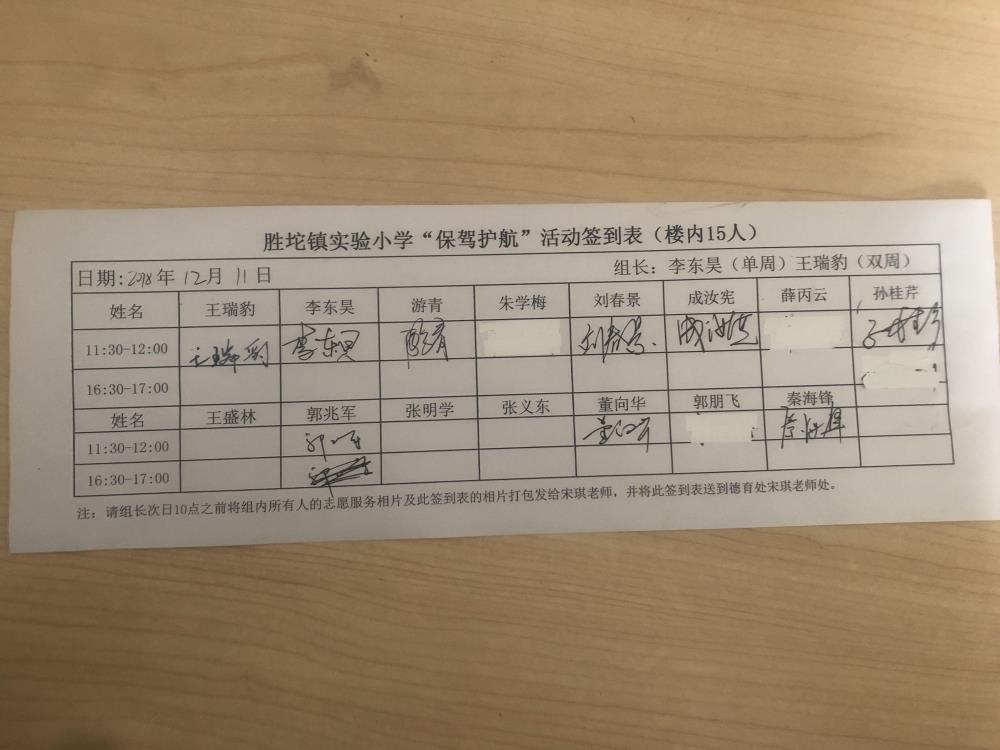 胜坨镇实验小学“保驾护航”活动签到表（楼内15人）
日期:2018年 12月 11日 组长：李东昊（单周）王瑞豹（双周）
姓名 王瑞豹 李东昊 游青 朱学梅 刘春景 成汝宪 薛丙云 孙桂芹
11:30-12:00 王瑞豹 李东昊 游青 刘春景 成汝宪 孙桂芹
16:30-17:00
姓名 王盛林 郭兆军 张明学 张义东 董向华 郭朋飞 秦海锋
11:30-12:00 董向华 秦海锋
16:30-17:00
注：请组长次日10点之前将组内所有人的志愿服务相片及此签到表的相片打包发给宋琪老师，并将此签到表送到德育处宋琪老师处。